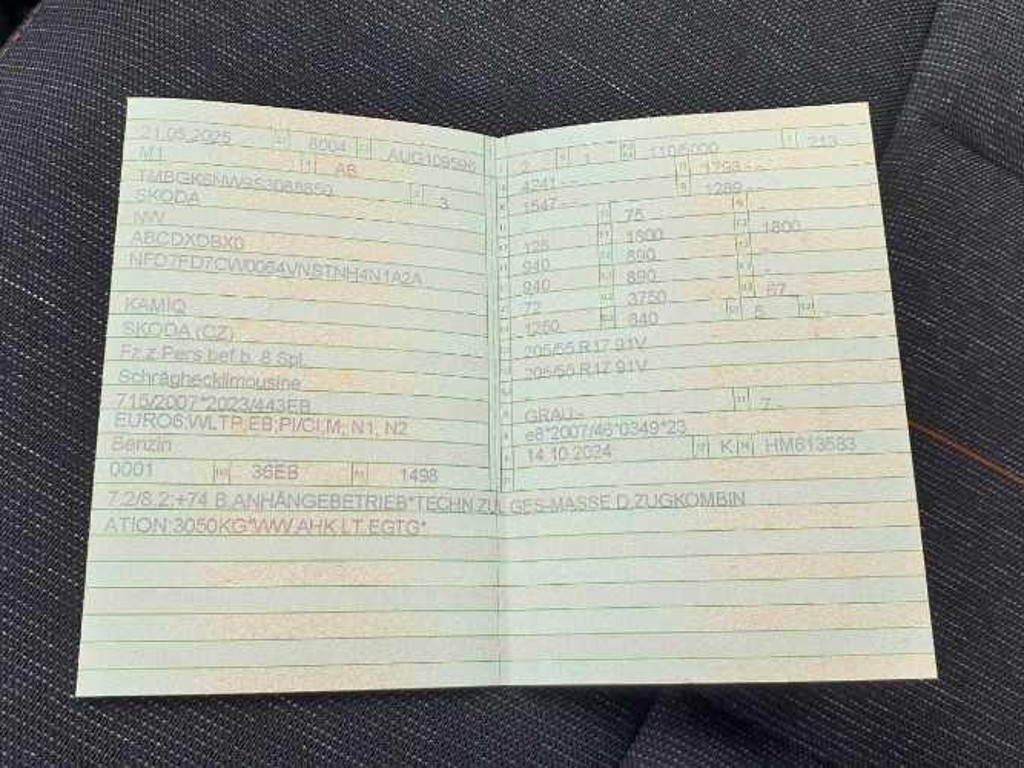 21.05.2025 8004 AUG109590
M1 AB
3
SKODA
NW
ABCDXDBX0
NFD7FD7CW0064VNSTNH4N1A2A
KAMIQ
SKODA (CZ)
Fz.z.Pers.bef.b. 8 Spl.
Schräghecklimousine
715/2007*2023/443EB
EURO6;WLTP;EB;PI/CI;M, N1, N2
Benzin
0001 36EB 1498
2 1 110/5000 213
4241-- 1793--
1547-- 1289--
75
125 1800 1800
940 890 -
940 890 -
72 3750 67
1250 640 5 -
205/55 R17 91V
205/55 R17 91V
GRAU- 7-
e8*2007/46*0349*23
14.10.2024 K HM613583
7.2/8.2:+74 B.ANHÄNGEBETRIEB*TECHN.ZUL.GES-MASSE D.ZUGKOMBIN
ATION:3050KG*WW.AHK LT.EGTG*